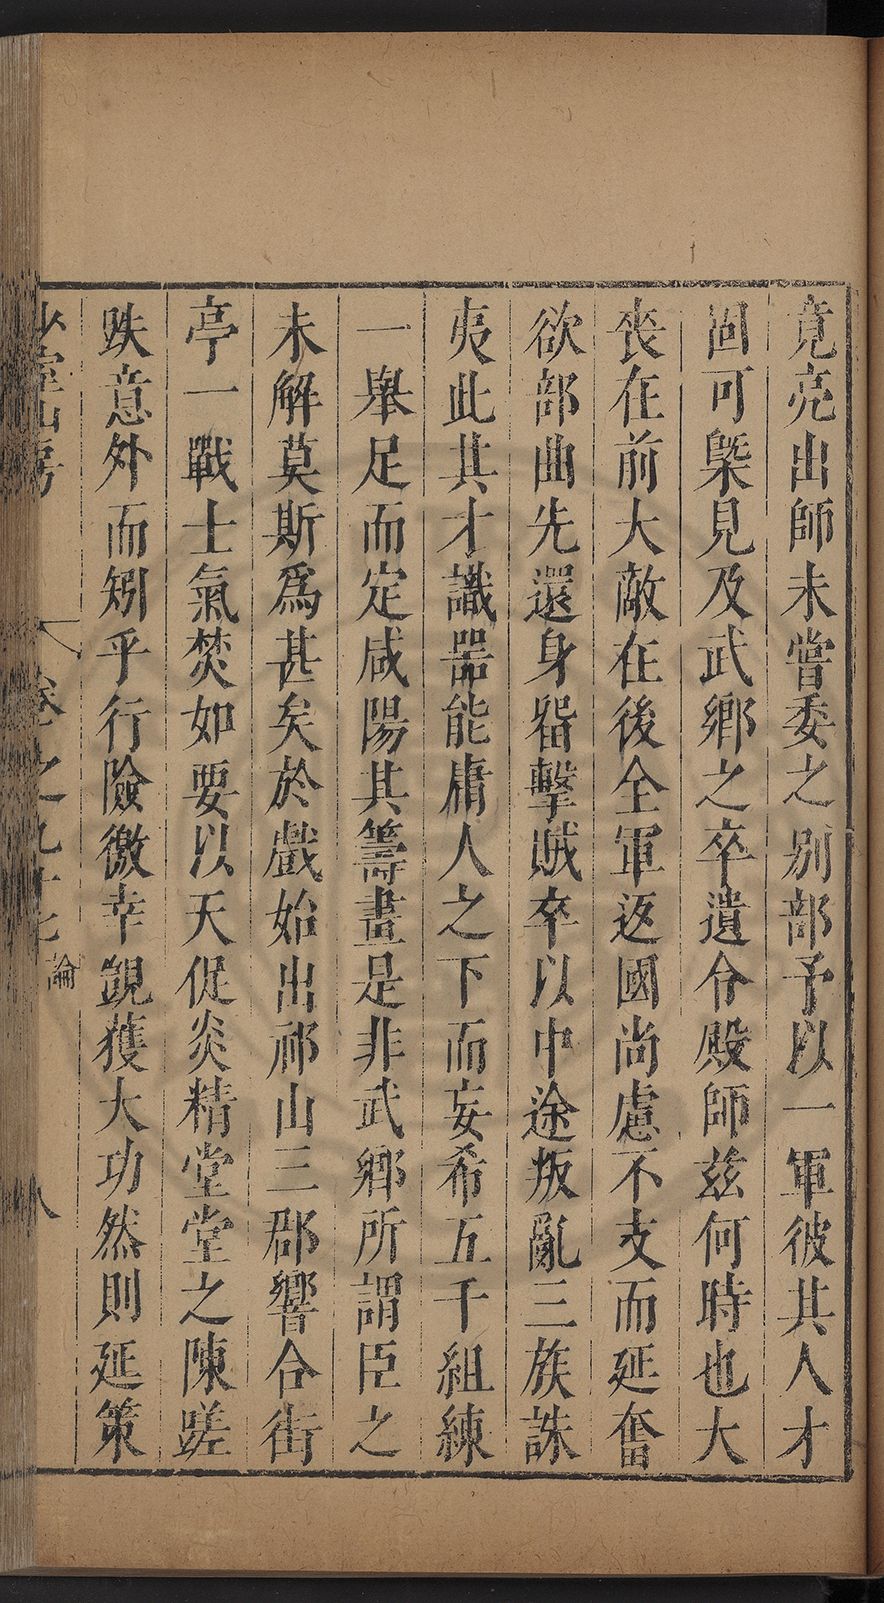 竟亮出師未嘗委之別部予以一軍彼其人才
固可槩見及武鄉之卒遺令殿師兹何時也大
喪在前大敵在後全軍返國尚慮不支而延奮
欲部曲先還身畱擊賊卒以中途叛亂三族誅
夷此其才識器能庸人之下而妄希五千組練
一舉足而定咸陽其籌畫是非武鄉所謂臣之
未解莫斯爲甚矣於戲始出祁山三郡響合街
亭一戰士氣焚如要以天促炎精堂堂之陳蹉
跌意外而矧乎行險徼幸覬獲大功然則延策
少室山房 卷之九十七 論 八